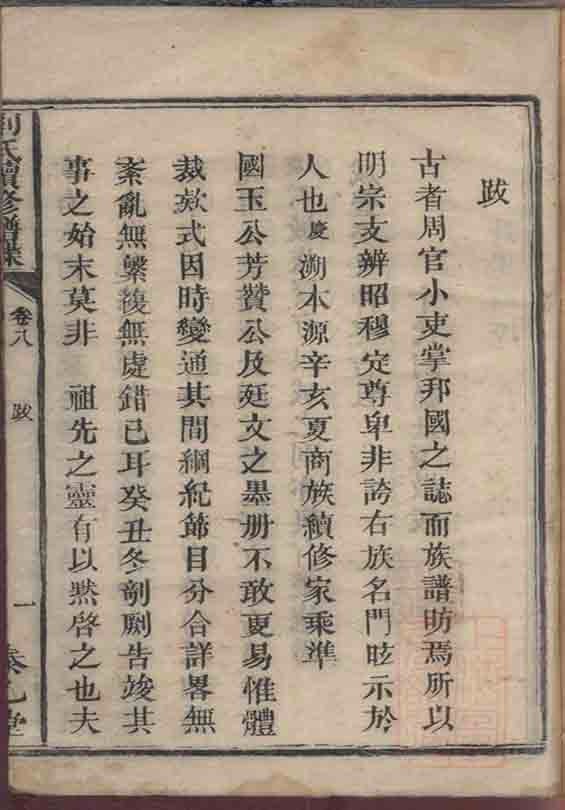 跋
古者周官小吏掌邦國之誌而族譜昉焉所以
明宗支辨昭穆定尊卑非誇右族名門眩示於
人也慶溯本源辛亥夏商族續修家乘準
國玉公芳贊公及廷文之墨册不敢更易惟體
裁款式因時變通其間綱紀節目分合詳畧無
紊亂無繁復無處錯已耳癸丑冬剞劂告竣其
事之始末莫非 祖先之靈有以黙啓之也夫
氏續修譜
卷八
跋
一
堂